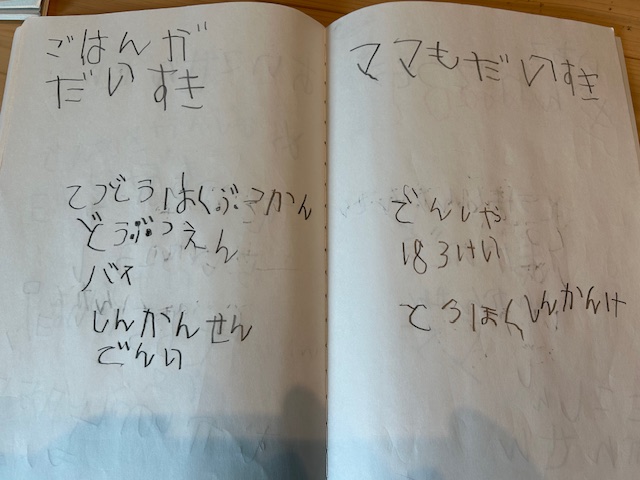 ごはんが
だいすき
てつどうはくぶつかん
どうぶつえん
バイ
しんかんせん
でんい
ママもだいすき
でんしゃ
183けい
とうほくしんかんけ